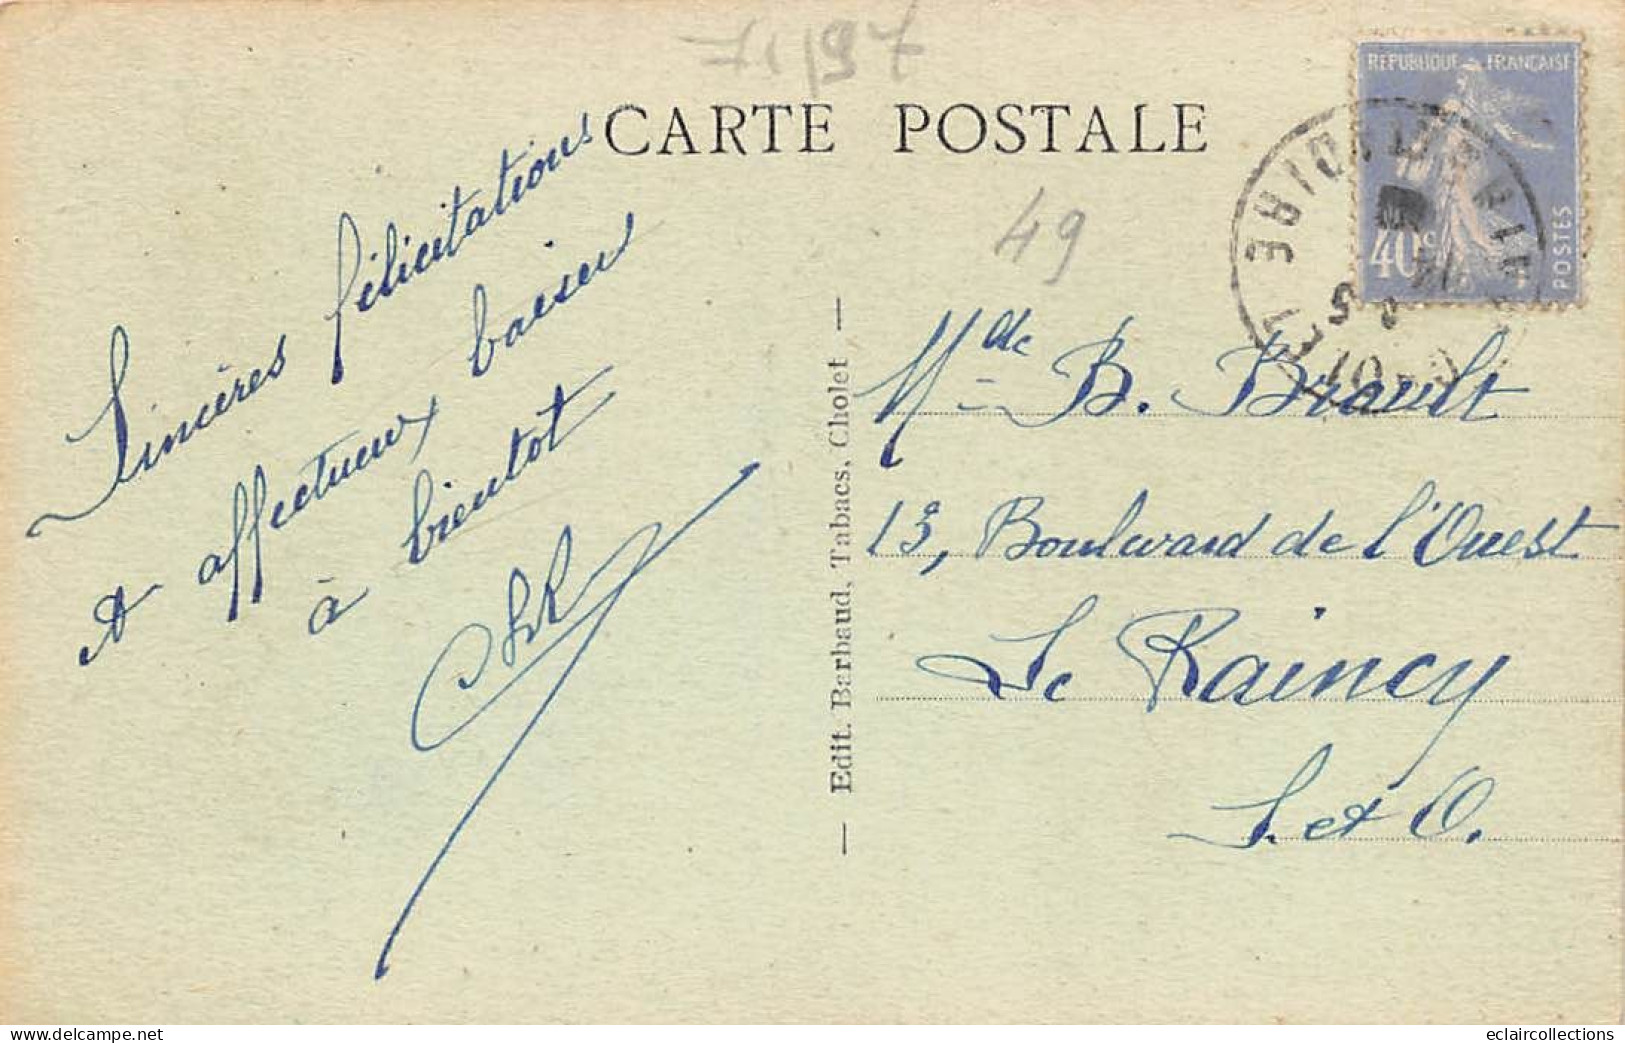 71/97
CARTE POSTALE
REPUBLIQUE FRANCAISE
40c
POSTES
49
Sincères félicitations
et affectueux baisers
à bientot
Edit. Barbaud, Tabacs, Cholet
Mde B. Brault
13, Boulevard de l'Ouest
Le Raincy
S. et O.
delcampe.net
eclaircollections